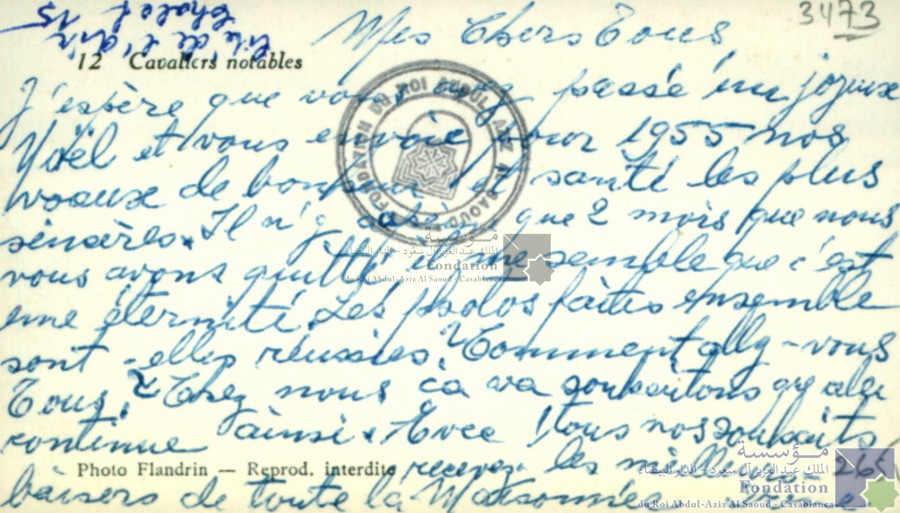 3473
Mes Chers Tous
12 Cavaliers notables
J'espère que vous avez passé un joyeux
Noël et vous envoie pour 1955 nos
voeaux de bonheur et santé les plus
sincères. Il n'y a que 2 mois que nous
vous avons quitté il me semble que c'est
une éternité. Les photos faites ensemble
sont-elles réussies? Comment allez-vous
Tous? Chez nous ça va souhaitons que cela
continue ainsi. Avec tous nos souhaits
recevez les meilleurs
baisers de toute la
Photo Flandrin — Reprod. interdite
FONDATION DU ROI ABDUL AZIZ AL SAOUD
مؤسسة
الملك عبد العزيز آل سعود - الدار البيضاء
Fondation
du Roi Abdul-Aziz Al Saoud - Casablanca
مؤسسة
الملك عبد العزيز آل سعود - الدار البيضاء
Fondation
du Roi Abdul-Aziz Al Saoud - Casablanca